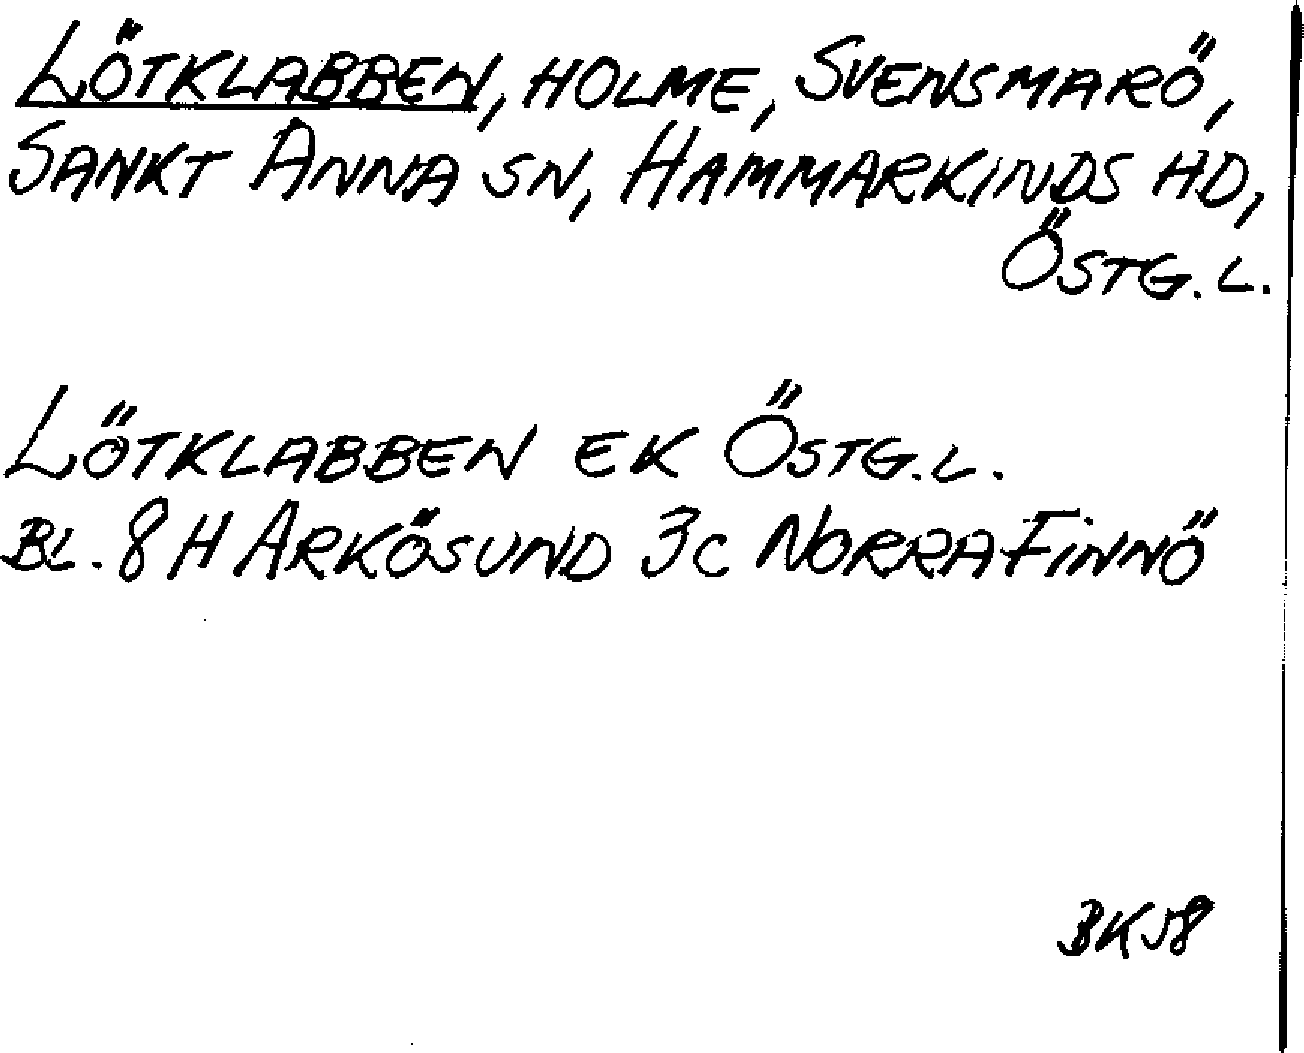 LÖTKLABBEN, HOLME, SVENSMARÖ,
SANKT ANNA SN, HAMMARKINDS HD,
ÖSTG.L.
LÖTKLABBEN EK ÖSTG.L.
BL. 8H ARKÖSUND 3C NORRA FINNÖ
BK58